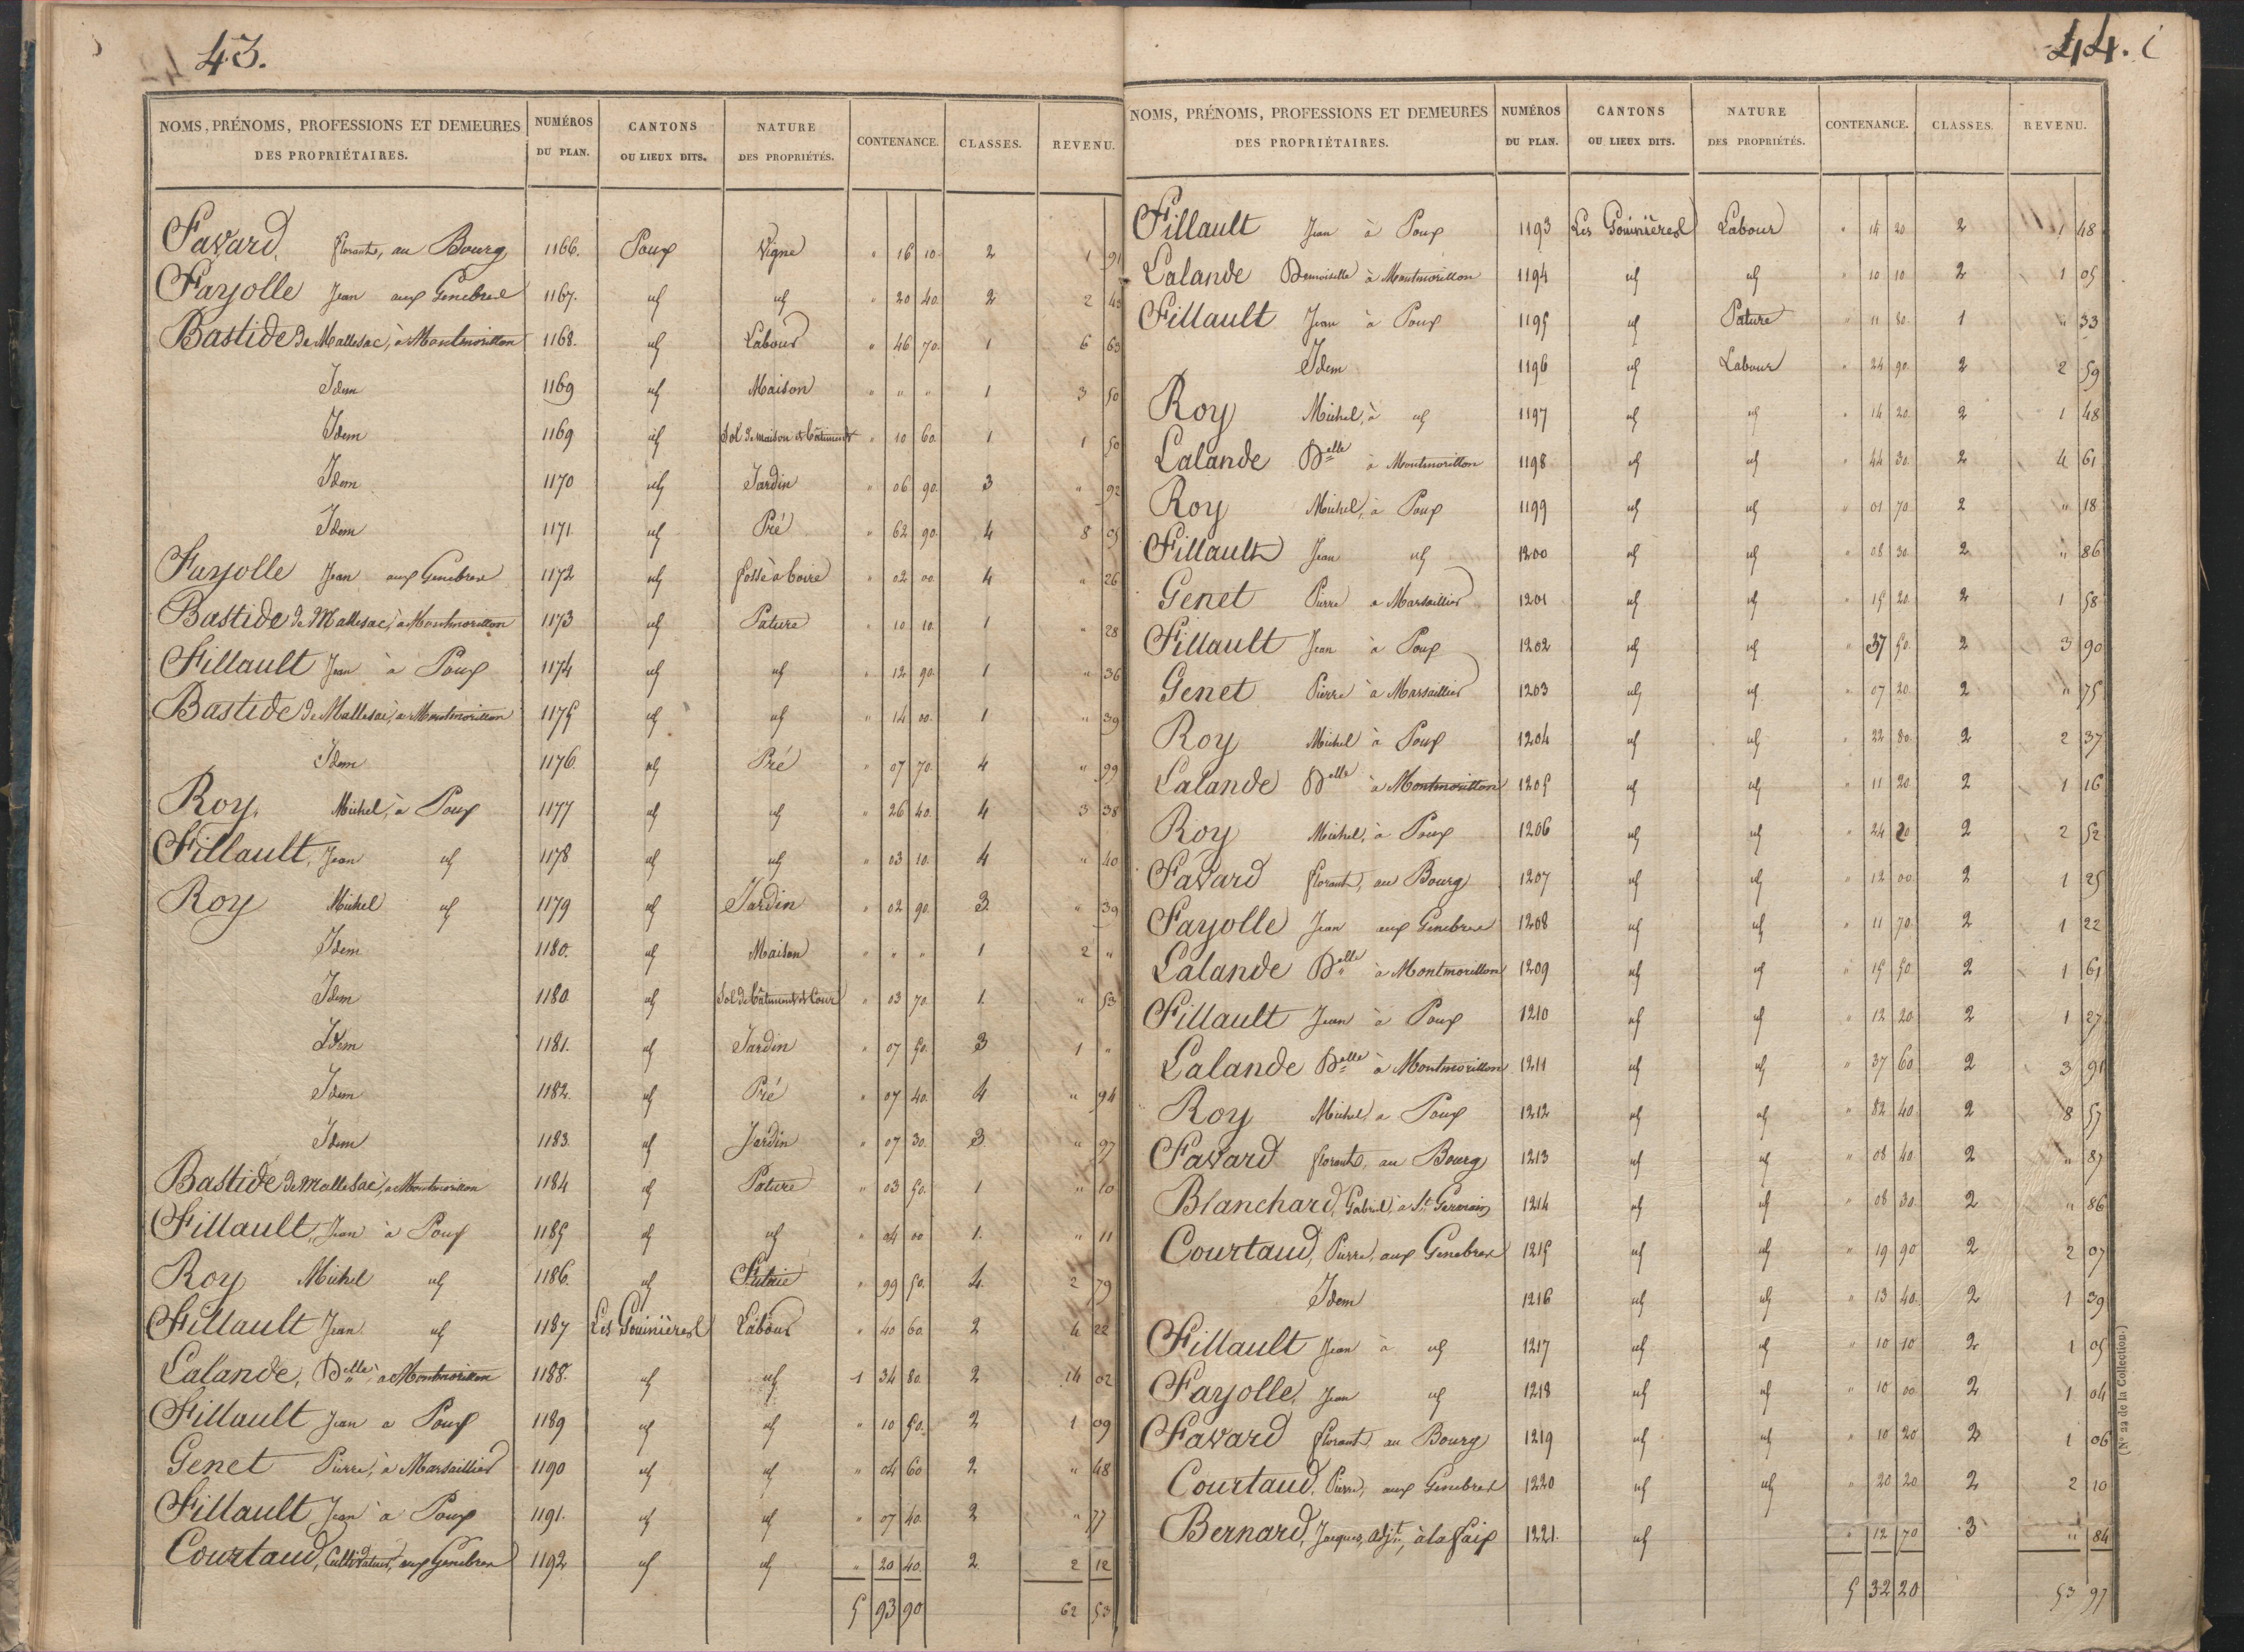 43.
NOMS, PRÉNOMS, PROFESSIONS ET DEMEURES DES PROPRIÉTAIRES. NUMÉROS DU PLAN. CANTONS OU LIEUX DITS. NATURE DES PROPRIÉTÉS. CONTENANCE. CLASSES. REVENU.
Favard, florant, au Bourg 1166. Poux Vigne " 16 10. 2 1 91
Fayolle Jean aux Genebres 1167. id id " 20 40. 2 2 43
Bastide de Mallesac, à Montmorillon 1168. id Labour " 46 70. 1 6 63
Idem 1169 id Maison " " " 1 3 50
Idem 1169 id Sol de maison et bâtiments " 10 60. 1 1 50
Idem 1170 id Jardin " 06 90. 3 " 92
Idem 1171. id Pré " 62 90. 4 8 05
Fayolle Jean aux Genebres 1172 id fossé à boire " 02 00. 4 " 26
Bastide de Mallesac, à Montmorillon 1173 id Pature " 10 10. 1 " 28
Fillault Jean à Poux 1174 id id " 12 90. 1 " 36
Bastide de Mallesac, à Montmorillon 1175 id id " 14 00. 1 " 39
Idem 1176. id Pré " 07 70. 4 " 99
Roy, Michel, à Poux 1177 id id " 26 40. 4 3 38
Fillault, Jean id 1178. id id " 03 10. 4 " 40
Roy Michel id 1179 id Jardin " 02 90. 3. " 39
Idem 1180. id Maison " " " 1 2 "
Idem 1180 id Sol de bâtiments et Cour " 03 70. 1. " 53
Idem 1181. id Jardin " 07 50. 3 1 "
Idem 1182. id Pré " 07 40. 4 " 94
Idem 1183. id Jardin " 07 30. 3. " 97
Bastide de Mallesac, à Montmorillon 1184 id Pature " 03 50. 1 " 10
Fillault, Jean à Poux 1185 id id " 04 00 1. " 11
Roy Michel id 1186. id Futaie " 99 50. 4. 2 79
Fillault Jean id 1187 Les Gouinières Labour " 40 60. 2 4 22
Lalande, Delle, à Montmorillon 1188. id id 1 34 80. 2 14 02
Fillault Jean à Poux 1189 id id " 10 50. 2 1 09
Genet Pierre, à Marsaillier 1190 id id " 04 60 2. " 48
Fillault Jean à Poux 1191. id id " 07 40. 2 " 77
Courtaud, Cultivateur, aux Genebres 1192 id id " 20 40. 2. 2 12
5 93 90 62 53
44.
NOMS, PRÉNOMS, PROFESSIONS ET DEMEURES DES PROPRIÉTAIRES. NUMÉROS DU PLAN. CANTONS OU LIEUX DITS. NATURE DES PROPRIÉTÉS. CONTENANCE. CLASSES. REVENU.
Fillault Jean à Poux 1193 Les Gouinières Labour " 14 20 2 1 48
Lalande Demoiselle à Montmorillon 1194 id id " 10 10 2 1 05
Fillault Jean à Poux 1195 id Pature " 11 80. 1 " 33
Idem 1196 id Labour " 24 90. 2 2 59
Roy Michel, à id 1197 id id " 14 20. 2 1 48
Lalande Delle à Montmorillon 1198 id id " 44 30. 2 4 61
Roy Michel, à Poux 1199 id id " 01 70 2 " 18
Fillault Jean id 1200 id id " 08 30. 2 " 86
Genet Pierre à Marsaillier 1201 id id " 15 20. 2 1 58
Fillault Jean à Poux 1202 id id " 37 50. 2 3 90
Genet Pierre à Marsaillier 1203 id id " 07 20. 2 " 75
Roy Michel à Poux 1204 id id " 22 80. 2 2 37
Lalande Delle à Montmorillon 1205 id id " 11 20 2 1 16
Roy Michel, à Poux 1206 id id " 24 20 2 2 52
Favard florant, au Bourg 1207 id id " 12 00 2 1 25
Fayolle Jean aux Genebres 1208 id id " 11 70. 2 1 22
Lalande Delle à Montmorillon 1209 id id " 15 50. 2 1 61
Fillault Jean à Poux 1210 id id " 12 20 2 1 27
Lalande Delle à Montmorillon 1211 id id " 37 60. 2 3 91
Roy Michel, à Poux 1212 id id " 82 40. 2 8 57
Favard florant, au Bourg 1213 id id " 08 40 2 " 87
Blanchard, Gabriel, à St. Germain 1214 id id " 08 30. 2 " 86
Courtaud, Pierre, aux Genebres 1215 id id " 19 90. 2 2 07
Idem 1216 id id " 13 40. 2 1 39
Fillault Jean à id 1217 id id " 10 10 2 1 05
Fayolle, Jean id 1218 id id " 10 00 2 1 04
Favard florant, au Bourg 1219 id id " 10 20 2 1 06
Courtaud, Pierre, aux Genebres 1220 id id " 20 20 2 2 10
Bernard, Jacques, adjt, à la faix 1221. id " 12 70 3 " 84
5 32 20 53 97
(N° 22 de la Collection.)